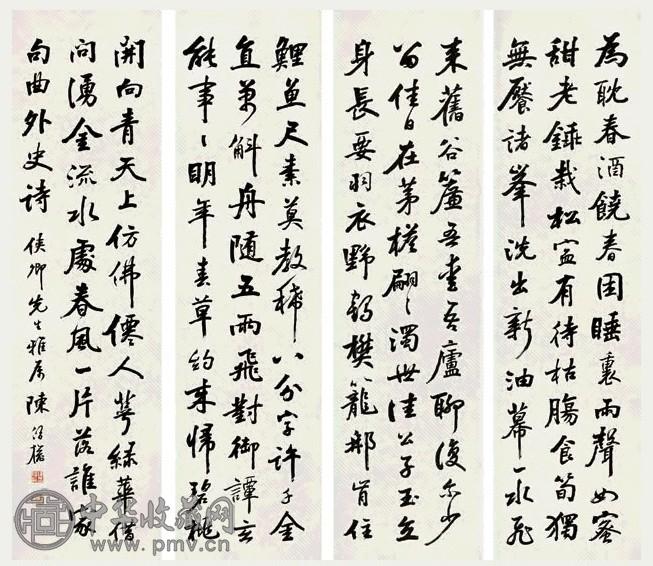 為耽春酒饒春困睡裏雨聲如蜜
甜老鍤栽松寧有待枯腸食筍獨
無饜諸峯洗出新油幕一水飛
來舊谷簾吾愛吾廬聊復爾少
留佳日在茅檐翩〻濁世佳公子玉立
身長要羽衣野鶴樊籠那肯住
鯉魚尺素莫教稀八分字許千金
直萬斛舟隨五兩飛對御譚玄
能事〻明年春草約來歸碧桃
開向青天上仿佛僊人萼綠華借
問湧金流水處春風一片落誰家
句曲外史诗 侯卿先生雅属 陳
中华收藏网
www.pmv.cn